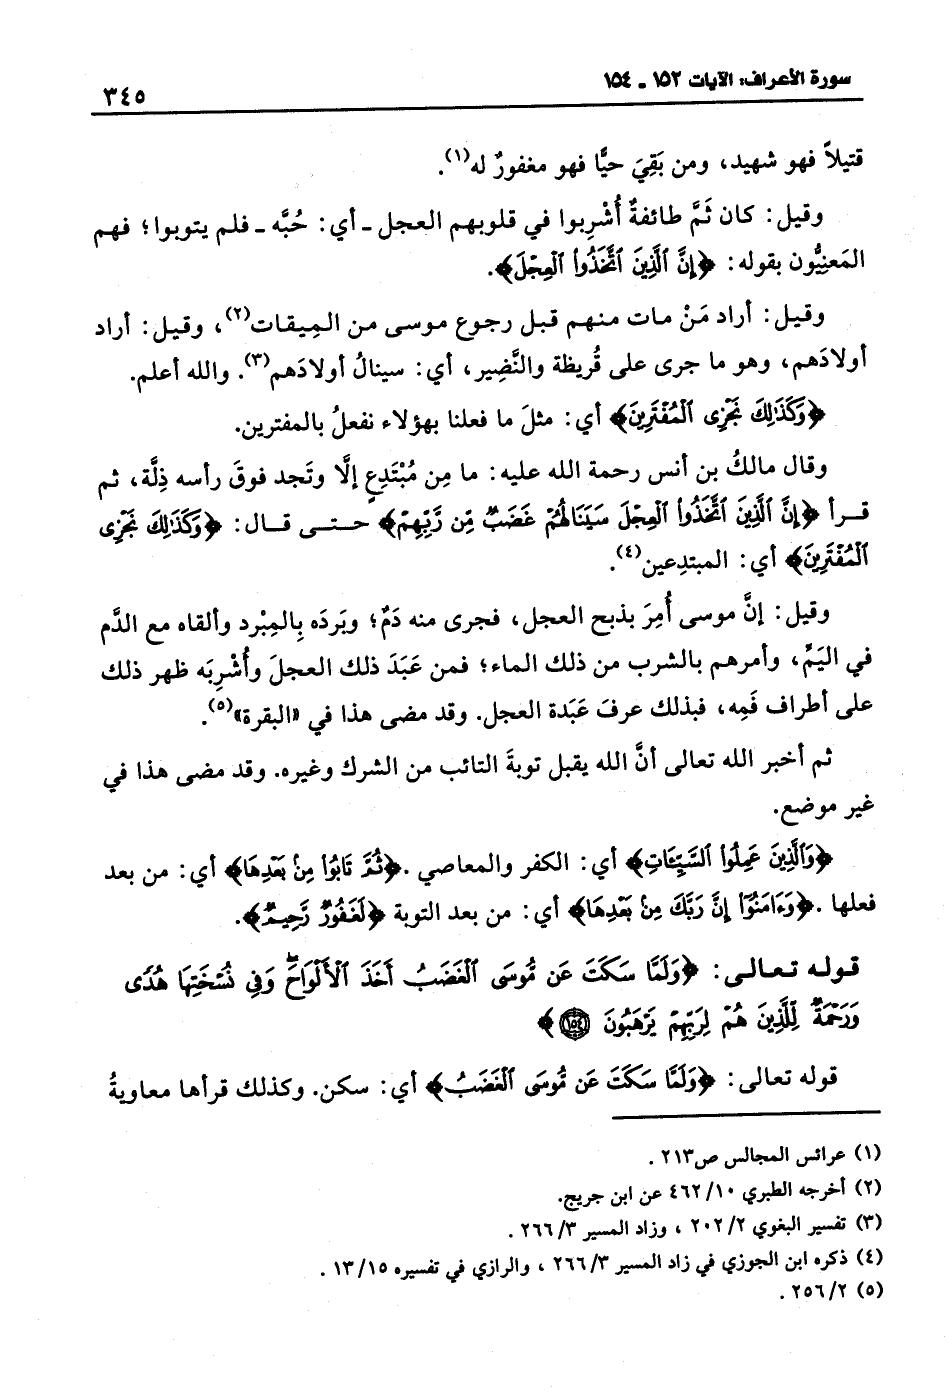 سورة الأعراف: الآيات ١٥٢ ـ ١٥٤
٣٤٥
قتيلاً فهو شهيد، ومن بَقِيَ حيًّا فهو مغفورٌ له(١).
وقيل: كان ثَمَّ طائفةٌ أُشْرِبوا في قلوبهم العجل ـ أي: حُبَّه ـ فلم يتوبوا؛ فهم
المَعنِيُّون بقوله: ﴿إِنَّ ٱلَّذِينَ ٱتَّخَذُواْ ٱلۡعِجۡلَ﴾.
وقيل: أراد مَنْ مات منهم قبل رجوع موسى من المِيقات(٢)، وقيل: أراد
أولادَهم، وهو ما جرى على قُريظة والنَّضِير، أي: سينالُ أولادَهم(٣). والله أعلم.
﴿وَكَذَٰلِكَ نَجۡزِي ٱلۡمُفۡتَرِينَ﴾ أي: مثلَ ما فعلنا بهؤلاء نفعلُ بالمفترين.
وقال مالكُ بن أنس رحمة الله عليه: ما مِن مُبْتَدِعٍ إلَّا وتَجد فوقَ رأسه ذِلَّة، ثم
قرأ ﴿إِنَّ ٱلَّذِينَ ٱتَّخَذُواْ ٱلۡعِجۡلَ سَيَنَالُهُمۡ غَضَبٞ مِّن رَّبِّهِمۡ﴾ حتى قال: ﴿وَكَذَٰلِكَ نَجۡزِي
ٱلۡمُفۡتَرِينَ﴾ أي: المبتدِعين(٤).
وقيل: إنَّ موسى أُمِرَ بذبح العجل، فجرى منه دَمٌ؛ وبَردَه بِالمِبْرد وألقاه مع الدَّم
في اليَمِّ، وأمرهم بالشرب من ذلك الماء؛ فمن عَبَدَ ذلك العجلَ وأُشْرِبَه ظهر ذلك
على أطراف فَمِه، فبذلك عرفَ عَبَدة العجل. وقد مضى هذا في «البقرة»(٥).
ثم أخبر الله تعالى أنَّ الله يقبل توبةَ التائب من الشرك وغيره. وقد مضى هذا في
غير موضع.
﴿وَٱلَّذِينَ عَمِلُواْ ٱلسَّيِّـَٔاتِ﴾ أي: الكفر والمعاصي. ﴿ثُمَّ تَابُواْ مِنۢ بَعۡدِهَا﴾ أي: من بعد
فعلها. ﴿وَءَامَنُوٓاْ إِنَّ رَبَّكَ مِنۢ بَعۡدِهَا﴾ أي: من بعد التوبة ﴿لَغَفُورٞ رَّحِيمٞ﴾.
قوله تعالى: ﴿وَلَمَّا سَكَتَ عَن مُّوسَى ٱلۡغَضَبُ أَخَذَ ٱلۡأَلۡوَاحَۖ وَفِي نُسۡخَتِهَا هُدٗى
وَرَحۡمَةٞ لِّلَّذِينَ هُمۡ لِرَبِّهِمۡ يَرۡهَبُونَ ١٥٤﴾
قوله تعالى: ﴿وَلَمَّا سَكَتَ عَن مُّوسَى ٱلۡغَضَبُ﴾ أي: سكن. وكذلك قرأها معاويةُ
(١) عرائس المجالس ص٢١٣.
(٢) أخرجه الطبري ٤٦٢/١٠ عن ابن جريج.
(٣) تفسير البغوي ٢٠٢/٢، وزاد المسير ٢٦٦/٣.
(٤) ذكره ابن الجوزي في زاد المسير ٢٦٦/٣، والرازي في تفسيره ١٣/١٥.
(٥) ٢٥٦/٢.